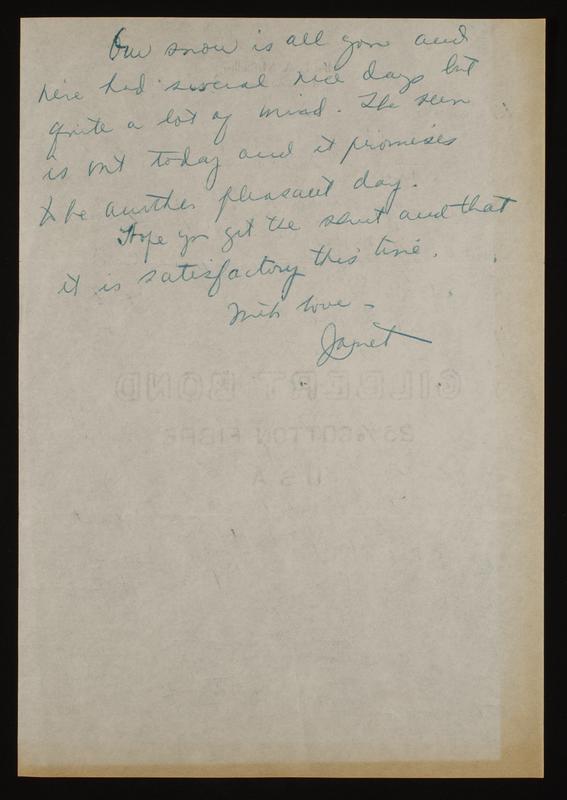 Our snow is all gone and
here had several nice days but
quite a lot of wind. The sun
is out today and it promises
to be another pleasant day.
Hope you get the and that
it is satisfactory this time.
With love -
Janet
GILBERT BOND
25% COTTON FIBRE
U S A